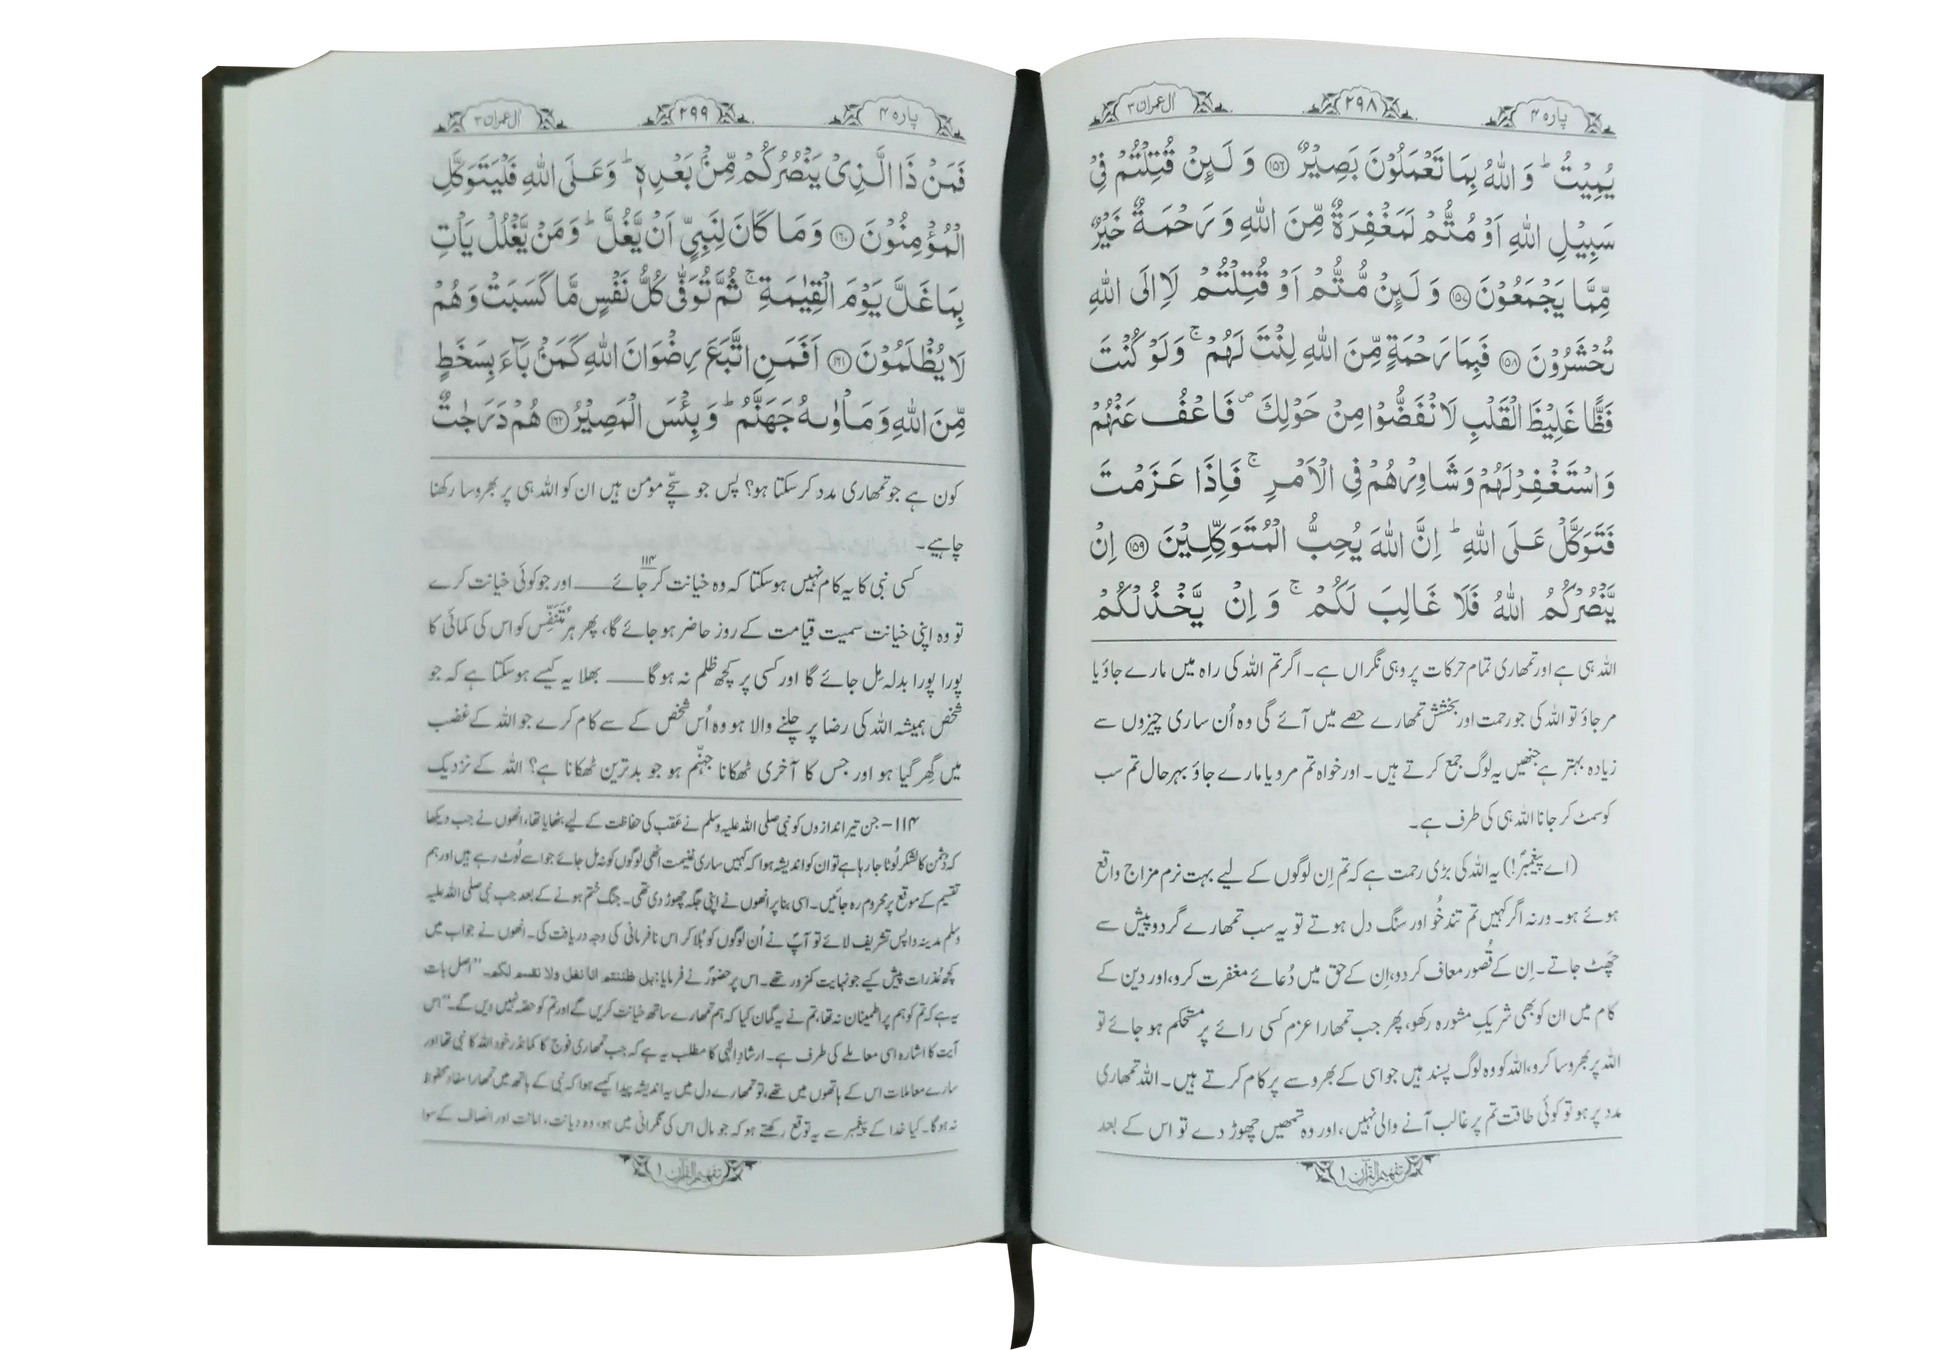 پارہ ۴
۲۹۸
اٰل عمران ۳
يُمِيْتُ ؕ وَ اللّٰهُ بِمَا تَعْمَلُوْنَ بَصِيْرٌ ﴿۱۵۶﴾ وَ لَىِٕنْ قُتِلْتُمْ فِيْ
سَبِيْلِ اللّٰهِ اَوْ مُتُّمْ لَمَغْفِرَةٌ مِّنَ اللّٰهِ وَ رَحْمَةٌ خَيْرٌ
مِّمَّا يَجْمَعُوْنَ ﴿۱۵۷﴾ وَ لَىِٕنْ مُّتُّمْ اَوْ قُتِلْتُمْ لَاِالَى اللّٰهِ
تُحْشَرُوْنَ ﴿۱۵۸﴾ فَبِمَا رَحْمَةٍ مِّنَ اللّٰهِ لِنْتَ لَهُمْ ۚ وَ لَوْ كُنْتَ
فَظًّا غَلِيْظَ الْقَلْبِ لَا نْفَضُّوْا مِنْ حَوْلِكَ ۪ فَاعْفُ عَنْهُمْ
وَ اسْتَغْفِرْ لَهُمْ وَ شَاوِرْهُمْ فِي الْاَمْرِ ۚ فَاِذَا عَزَمْتَ
فَتَوَكَّلْ عَلَى اللّٰهِ ؕ اِنَّ اللّٰهَ يُحِبُّ الْمُتَوَكِّلِيْنَ ﴿۱۵۹﴾ اِنْ
يَّنْصُرْكُمُ اللّٰهُ فَلَا غَالِبَ لَكُمْ ۚ وَ اِنْ يَّخْذُلْكُمْ
اللہ ہی ہے اور تمھاری تمام حرکات پر وہی نگراں ہے۔ اگر تم اللہ کی راہ میں مارے جاؤ یا
مر جاؤ تو اللہ کی جو رحمت اور بخشش تمھارے حصے میں آئے گی وہ اُن ساری چیزوں سے
زیادہ بہتر ہے جنھیں یہ لوگ جمع کرتے ہیں۔ اور خواہ تم مرو یا مارے جاؤ بہرحال تم سب
کو سمٹ کر جانا اللہ ہی کی طرف ہے۔
(اے پیغمبرؐ!) یہ اللہ کی بڑی رحمت ہے کہ تم اِن لوگوں کے لیے بہت نرم مزاج واقع
ہوئے ہو۔ ورنہ اگر کہیں تم تند خُو اور سنگ دل ہوتے تو یہ سب تمھارے گردوپیش سے
چَھٹ جاتے۔ اِن کے قُصور معاف کر دو، اِن کے حق میں دُعائے مغفرت کرو، اور دین کے
کام میں ان کو بھی شریکِ مشورہ رکھو، پھر جب تمھارا عزم کسی رائے پر مستحکم ہو جائے تو
اللہ پر بھروسا کرو، اللہ کو وہ لوگ پسند ہیں جو اسی کے بھروسے پر کام کرتے ہیں۔ اللہ تمھاری
مدد پر ہو تو کوئی طاقت تم پر غالب آنے والی نہیں، اور وہ تمھیں چھوڑ دے تو اس کے بعد
تفہیم القرآن ۱
پارہ ۴
۲۹۹
اٰل عمران ۳
فَمَنْ ذَا الَّذِيْ يَنْصُرُكُمْ مِّنْۢ بَعْدِهٖ ؕ وَ عَلَى اللّٰهِ فَلْيَتَوَكَّلِ
الْمُؤْمِنُوْنَ ﴿۱۶۰﴾ وَ مَا كَانَ لِنَبِيٍّ اَنْ يَّغُلَّ ؕ وَ مَنْ يَّغْلُلْ يَاْتِ
بِمَا غَلَّ يَوْمَ الْقِيٰمَةِ ۚ ثُمَّ تُوَفّٰى كُلُّ نَفْسٍ مَّا كَسَبَتْ وَ هُمْ
لَا يُظْلَمُوْنَ ﴿۱۶۱﴾ اَفَمَنِ اتَّبَعَ رِضْوَانَ اللّٰهِ كَمَنْۢ بَآءَ بِسَخَطٍ
مِّنَ اللّٰهِ وَ مَاْوٰىهُ جَهَنَّمُ ؕ وَ بِئْسَ الْمَصِيْرُ ﴿۱۶۲﴾ هُمْ دَرَجٰتٌ
کون ہے جو تمھاری مدد کر سکتا ہو؟ پس جو سچّے مومن ہیں ان کو اللہ ہی پر بھروسا رکھنا
چاہیے۔
کسی نبی کا یہ کام نہیں ہو سکتا کہ وہ خیانت کر جائے۱۱۴ ــــ اور جو کوئی خیانت کرے
تو وہ اپنی خیانت سمیت قیامت کے روز حاضر ہو جائے گا، پھر ہر مُتَنَفِّس کو اس کی کمائی کا
پورا پورا بدلہ مِل جائے گا اور کسی پر کچھ ظلم نہ ہو گا ــــ بھلا یہ کیسے ہو سکتا ہے کہ جو
شخص ہمیشہ اللہ کی رضا پر چلنے والا ہو وہ اُس شخص کے سے کام کرے جو اللہ کے غضب
میں گِھر گیا ہو اور جس کا آخری ٹھکانا جہنّم ہو جو بدترین ٹھکانا ہے؟ اللہ کے نزدیک
۱۱۴- جن تیر اندازوں کو نبی صلی اللہ علیہ وسلم نے عقب کی حفاظت کے لیے بٹھایا تھا، انھوں نے جب دیکھا
کہ دشمن کا لشکر لُوٹا جا رہا ہے تو ان کو اندیشہ ہوا کہ کہیں ساری غنیمت انھی لوگوں کو نہ مل جائے جو اسے لُوٹ رہے ہیں اور ہم
تقسیم کے موقع پر محروم رہ جائیں۔ اسی بنا پر انھوں نے اپنی جگہ چھوڑ دی تھی۔ جنگ ختم ہونے کے بعد جب نبی صلی اللہ علیہ
وسلم مدینہ واپس تشریف لائے تو آپؐ نے اُن لوگوں کو بُلا کر اس نافرمانی کی وجہ دریافت کی۔ انھوں نے جواب میں
کچھ عُذرات پیش کیے جو نہایت کمزور تھے۔ اس پر حضورؐ نے فرمایا: بل ظننتم انا نغل ولا نقسم لکم۔ ”اصل بات
یہ ہے کہ تم کو ہم پر اطمینان نہ تھا، تم نے یہ گمان کیا کہ ہم تمھارے ساتھ خیانت کریں گے اور تم کو حصّہ نہیں دیں گے۔“ اس
آیت کا اشارہ اسی معاملے کی طرف ہے۔ ارشادِ الٰہی کا مطلب یہ ہے کہ جب تمھاری فوج کا کمانڈر خود اللہ کا نبی تھا اور
سارے معاملات اس کے ہاتھوں میں تھے، تو تمھارے دل میں یہ اندیشہ پیدا کیسے ہوا کہ نبی کے ہاتھ میں تمھارا مفاد محفوظ
نہ ہو گا۔ کیا خدا کے پیغمبر سے یہ توقع رکھتے ہو کہ جو مال اس کی نگرانی میں ہو، وہ دیانت، امانت اور انصاف کے سوا
تفہیم القرآن ۱